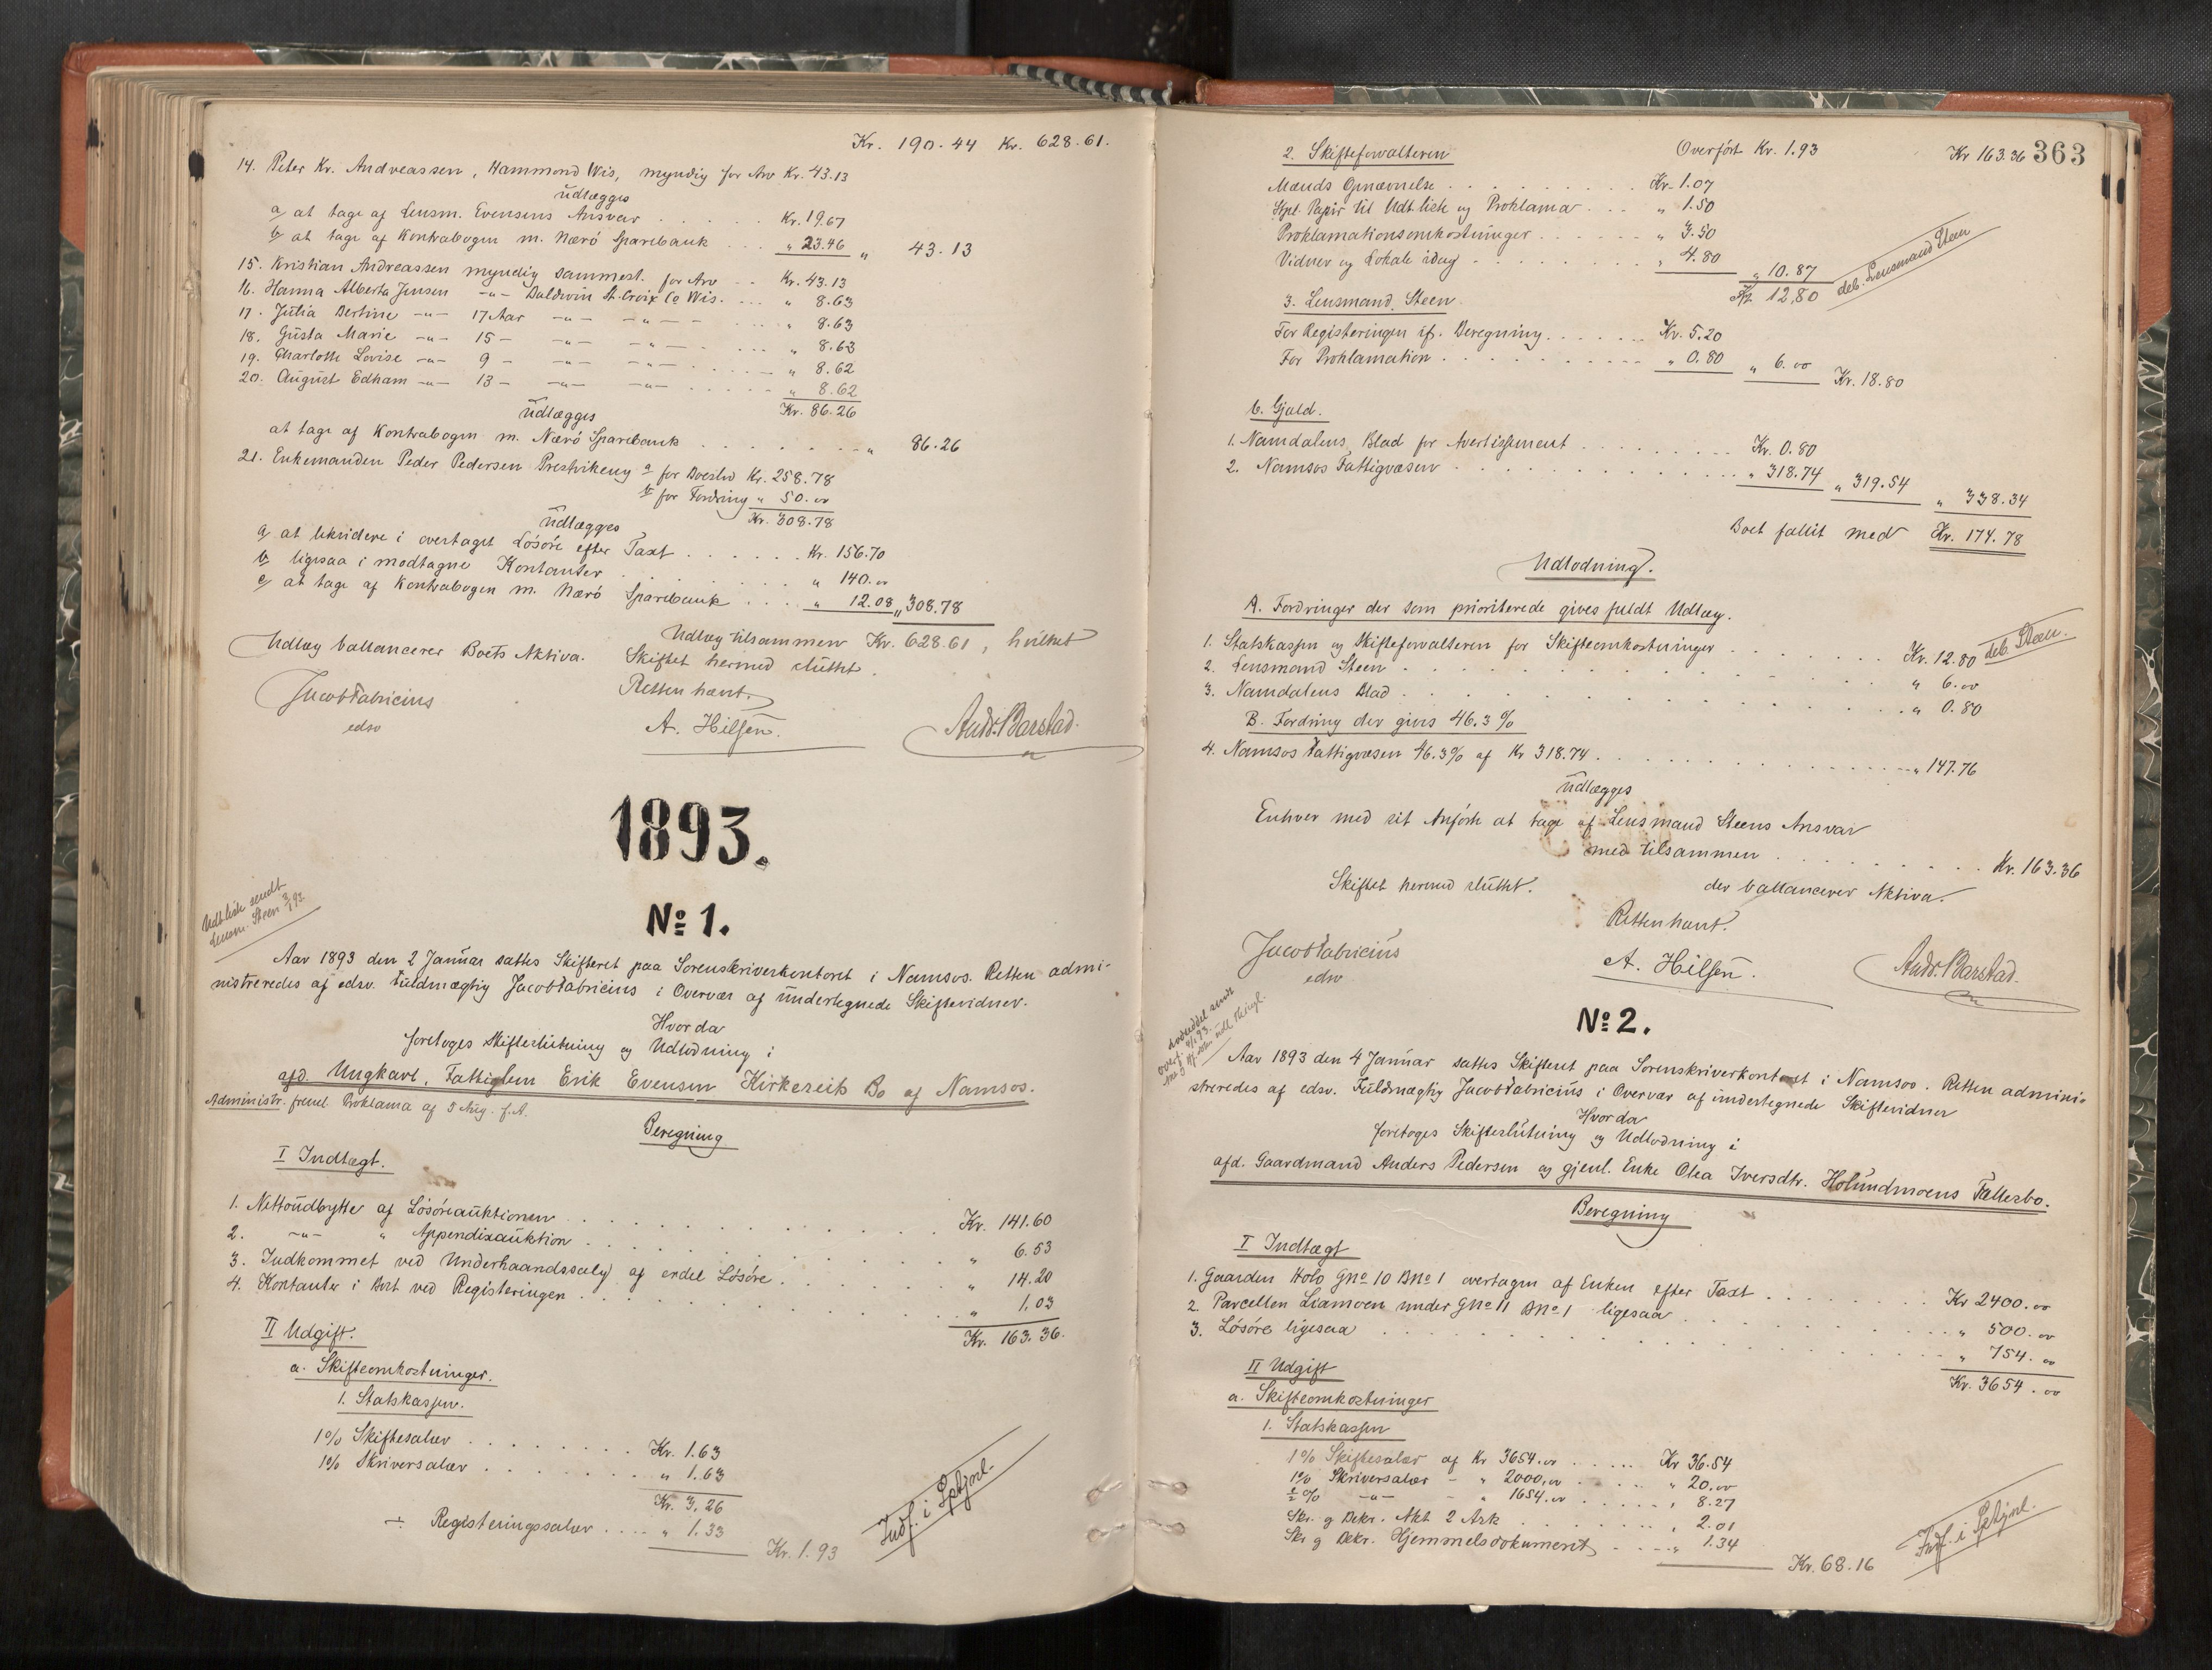 Kr. 190.44 Kr. 628.61.
14. Peter Kr. Andreassen, Hammond Wis, myndig for Arv Kr. 43.13
Udlægges
a, at tage af Lensm. Evensens Ansvar . . . . Kr. 19.67
b, at tage af Kontrabogen m. Nærö Sparebank . . . „ 23.46 „ 43.13
15. Kristian Andreassen myndig sammest. for Arv . . Kr. 43.13
16. Hanna Alberta Jensen -„- Baldwin St. Croix Co Wis. . . . „ 8.63
17. Julia Bertine -„- 17 Aar -„- -„- . . . „ 8.63
18. Gusta Marie -„- 15 - -„- -„- . . . „ 8.63
19. Charlotte Lovise -„- 9 - -„- -„- . . . . „ 8.62
20. August Edham -„- 13 - -„- -„- . . . . „ 8.62
Kr. 86.26
Udlægges
at tage af Kontrabogen m. Nærö Sparebank . . . . . . . „ 86.26
21. Enkemanden Peder Pedersen Prestvikeng a for Boeslod Kr. 258.78
b for Fordring „ 50.oo
Kr. 308.78
Udlægges
a, at likvidere i overtaget Lösöre efter Taxt . . . . . . Kr. 156.70
b, ligesaa i modtagne Kontanter . . . . . . . „ 140.oo
c, at tage af Kontrabogen m. Nærö Sparebank . . . . „ 12.08 „ 308.78
Udlæg tilsammen Kr. 628.61, hvilket
Udlæg ballancerer Boets Aktiva. Skiftet hermed sluttet.
Retten hævt.
Jacob Fabricius
edsv
A. Hilsen.
Andr. Barstad.
1893.
No 1.
Udt liste sendt
Lensm. Steen 3/1 93.
Aar 1893 den 2 Januar sattes Skifteret paa Sorenskriverkontoret i Namsos. Retten admi-
nistreredes af edsv. Fuldmægtig Jacob Fabricius i Overvær af undertegnede Skiftevidner.
Hvor da
foretoges Skifteslutning og Udlodning i
afd. Ungkarl, Fattiglem Erik Evensen Kirkereits Bo af Namsos.
Administr. freml. Proklama af 5 Aug. f. A.
Beregning
I Indtægt.
1. Nettoudbytte af Lösöreauktionen . . . . . . . . Kr. 141.60
2. -„- „ Appendixauktion . . . . . . . . „ 6.53
3. Indkommet ved Underhaandssalg af endel Lösöre . . . . „ 14.20
4. Kontanter i Boet ved Registeringen . . . . . . . . „ 1.03
Kr. 163.36.
II Udgift.
a. Skifteomkostninger.
1. Statskassen.
1% Skiftesalær . . . . . . . Kr. 1.63
1% Skriversalær . . . . . . . „ 1.63
Kr. 3.26
÷ Registeringssalær . . . . „ 1.33
Kr. 1.93
Indf. i Sptjnl.
363
2. Skifteforvalteren Overfört Kr. 1.93 Kr 163.36
Mænds Opnævnelse . . . . . . . . Kr. 1.07
Stpl. Papir til Udt. liste og Proklama . . . „ 1.50
Proklamationsomkostninger . . . . . . „ 3.50
Vidner og Lokale idag . . . . . . . . „ 4.80
„ 10.87
Kr. 12.80
deb. Lensmand Steen
3. Lensmand Steen.
For Registeringen if. Beregning . . . . . . Kr. 5.20
For Proklamation . . . . . . . . . . „ 0.80 „ 6.oo Kr. 18.80
b. Gjæld.
1. Namdalens Blad for Avertissement . . . . . . . . . Kr. 0.80
2. Namsos Fattigvæsen . . . . . . . . . . „ 318.74 „ 319.54 „ 338.34
Boet fallit med Kr. 174.78
Udlodning.
A. Fordringer der som prioriterede gives fuldt Udlæg.
1. Statskassen og Skifteforvalteren for Skifteomkostninger . . . . . . . Kr. 12.80 deb. Steen.
2. Lensmand Steen . . . . . . . . . . . . „ 6.oo
3. Namdalens Blad . . . . . . . . . . . . „ 0.80
B. Fordring der gives 46.3 %
4. Namsos Fattigvæsen 46.3% af Kr 318.74 . . . . . . . . . . „ 147.76
Udlægges
Enhver med sit Anförte at tage af Lensmand Steens Ansvar
med tilsammen . . . . . . . . . Kr. 163.36
der ballancerer Aktiva.
Skiftet hermed sluttet.
Retten hævt.
Jacob Fabricius
edsv
A. Hilsen.
Andr. Barstad.
No 2.
Aar 1893 den 4 Januar sattes Skifteret paa Sorenskriverkontoret i Namsos. Retten admini-
streredes af edsv. Fuldmægtig Jacob Fabricius i Overvær af undertegnede Skiftevidner
Hvor da
foretoges Skifteslutning og Udlodning i
afd. Gaardmand Anders Pedersen og gjenl. Enke Olea Iversdtr. Holundmoens Fællesbo.
Beregning
I Indtægt
1. Gaarden Holo Gno 10 Bno 1 overtagen af Enken efter Taxt . . . . . . . . Kr 2400.oo
2. Parcellen Liamoen under Gno 11 Bno 1 ligesaa . . . . . . . . „ 500.oo
3. Lösöre ligesaa . . . . . . . . . . . . „ 754.oo
Kr. 3654.oo
II Udgift
a. Skifteomkostninger
1. Statskassen
1% Skiftesalær af Kr 3654.oo . . . . . Kr 36.54
1% Skriversalær - „ 2000.oo . . . . . „ 20.oo
½% -„- - „ 1654.oo . . . . . „ 8.27
Skr. g Bekr. Akt 2 Ark . . . . . . . . „ 2.01
Skr g Bekr. Hjemmelsdokument . . . . „ 1.34
Kr. 68.16
Indf. i Sptjnl.